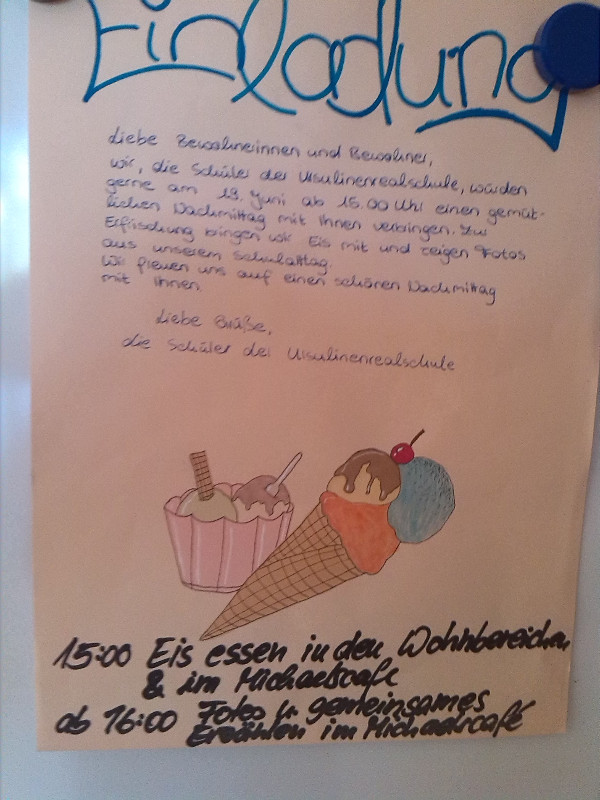 Einladung
Liebe Bewohnerinnen und Bewohner,
wir, die Schüler der Ursulinenrealschule, würden
gerne am 19. Juni ab 15.00 Uhr einen gemüt-
lichen Nachmittag mit Ihnen verbringen. Zur
Erfrischung bringen wir Eis mit und zeigen Fotos
aus unserem Schulalltag.
Wir freuen uns auf einen schönen Nachmittag
mit Ihnen.
Liebe Grüße,
die Schüler der Ursulinenrealschule
15:00 Eis essen in den Wohnbereichen
& im Michaelscafe
ab 16:00 Fotos u. gemeinsames
Erzählen im Michaelscafé